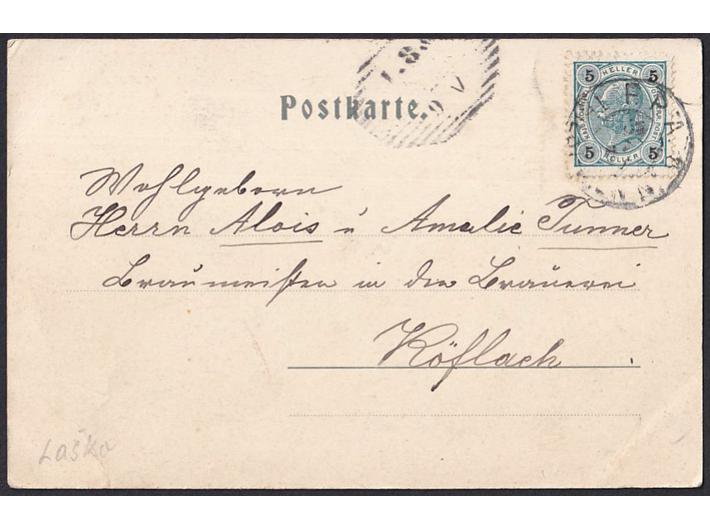 Postkarte.
5 HELLER 5
5 HELLER 5
Wohlgeborn
Herrn Alois u Amalie Tunner
Braumeister in der Brauerei
Köflach
Laško